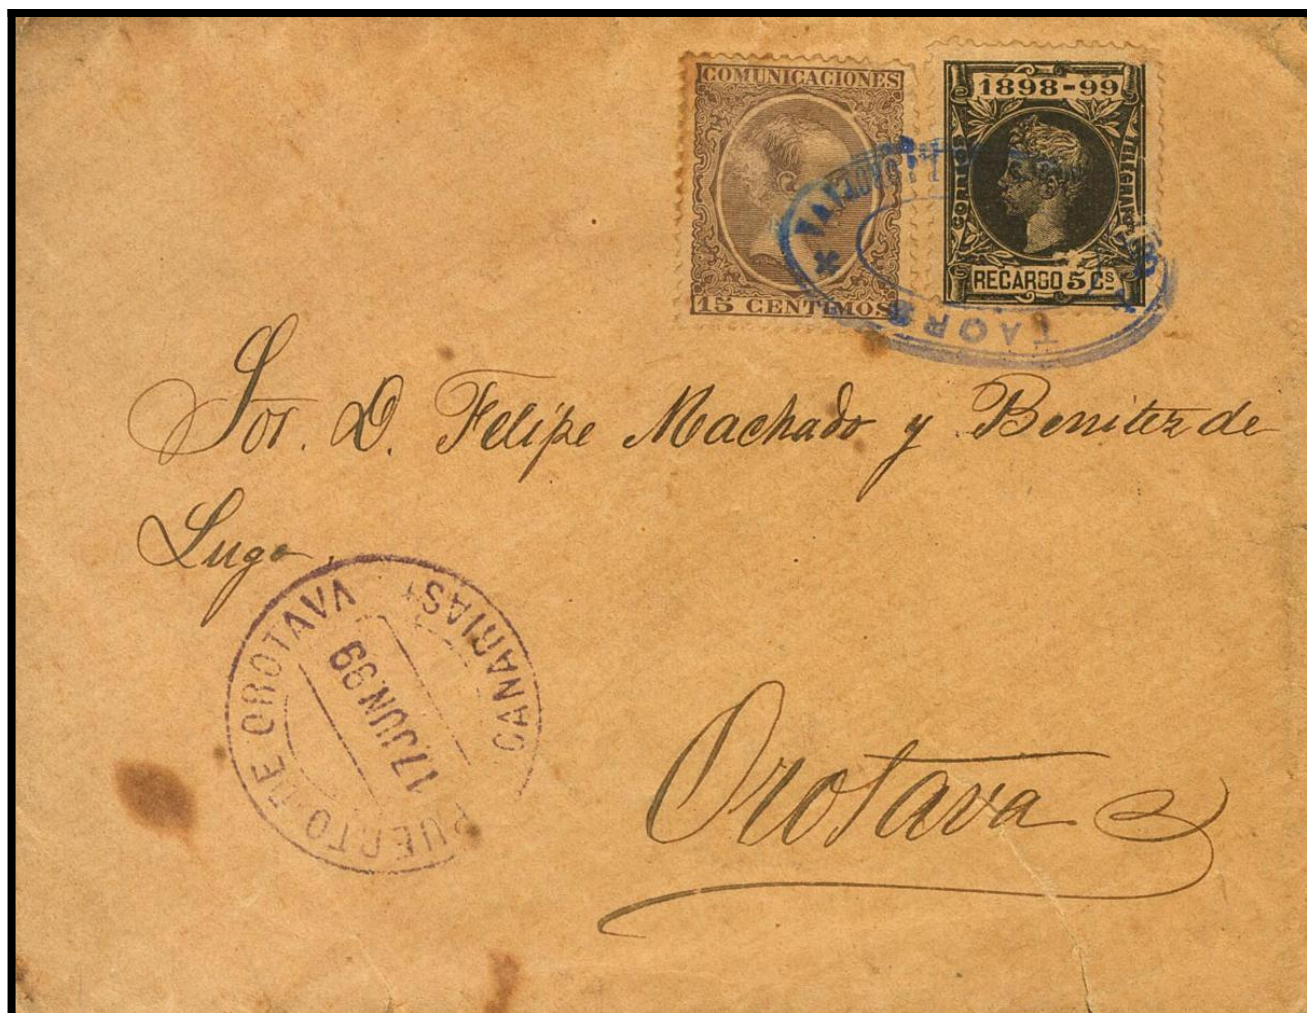 COMUNICACIONES
15 CENTIMOS
1898-99
CORREOS
TELEGRAFOS
RECARGO 5 Cs
TAORO
Sor. D. Felipe Machado y Benitez de
Lugo.
PUERTO DE OROTAVA
17 JUN 99
CANARIAS
Orotava